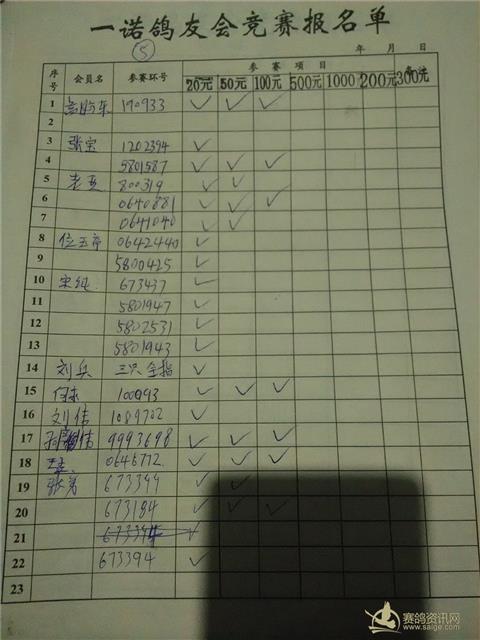 一诺鸽友会竞赛报名单
⑤
年 月 日
序号 会员名 参赛环号 参赛项目 备注
20元 50元 100元 500元 1000 200元 300元
1 190933 ✓ ✓ ✓
2
3 张宝 1202394 ✓
4 5801587 ✓ ✓ ✓
5 老五 800319 ✓ ✓
6 0640881 ✓ ✓ ✓
7 0641040 ✓ ✓
8 0642440 ✓
9 5800425 ✓
10 宋纯 673437 ✓
11 5801947 ✓
12 5802531 ✓
13 5801943 ✓
14 刘兵 三只全指 ✓
15 100993 ✓ ✓ ✓
16 刘伟 1089702 ✓
17 9993698 ✓ ✓ ✓
18 0646772 ✓ ✓ ✓
19 张勇 673399 ✓ ✓
20 673184 ✓ ✓ ✓
21
22 673394 ✓
23
赛鸽资讯网
www.saige.com